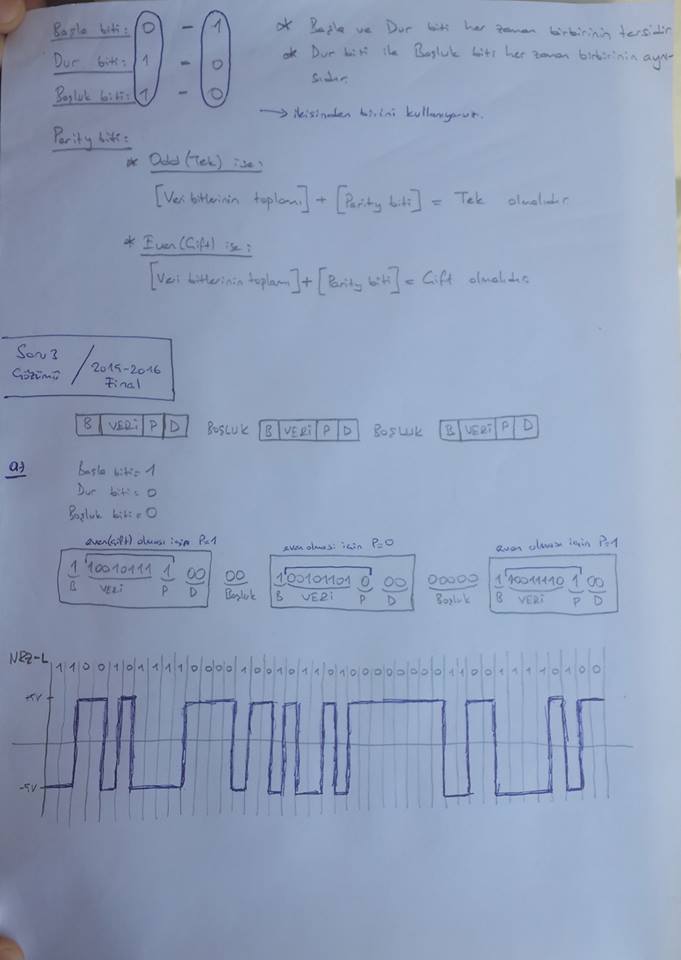 Başla biti: 0 - 1
Dur biti: 1 - 0
Boşluk biti: 1 - 0
* Başla ve Dur biti her zaman birbirinin tersidir.
* Dur biti ile Boşluk biti her zaman birbirinin aynısıdır.
→ ikisinden birini kullanıyoruz.
Parity biti:
* Odd (Tek) ise:
[Veri bitlerinin toplamı] + [Parity biti] = Tek olmalıdır.
* Even (Çift) ise:
[Veri bitlerinin toplamı] + [Parity biti] = Çift olmalıdır.
Soru 3 / 2015-2016
Çözümü Final
B VERİ P D BOŞLUK B VERİ P D BOŞLUK B VERİ P D
a)
Başla biti = 1
Dur biti = 0
Boşluk biti = 0
even(çift) olması için P=1 even olması için P=0 even olması için P=1
1 10010111 1 00 00 1 00101101 0 00 00000 1 10011110 1 00
B VERİ P D Boşluk B VERİ P D Boşluk B VERİ P D
NRZ-L 1 1 0 0 1 0 1 1 1 1 0 0 0 0 1 0 0 1 0 1 1 0 1 0 0 0 0 0 0 0 0 1 1 0 0 1 1 1 1 0 1 0 0
+5V
-5V